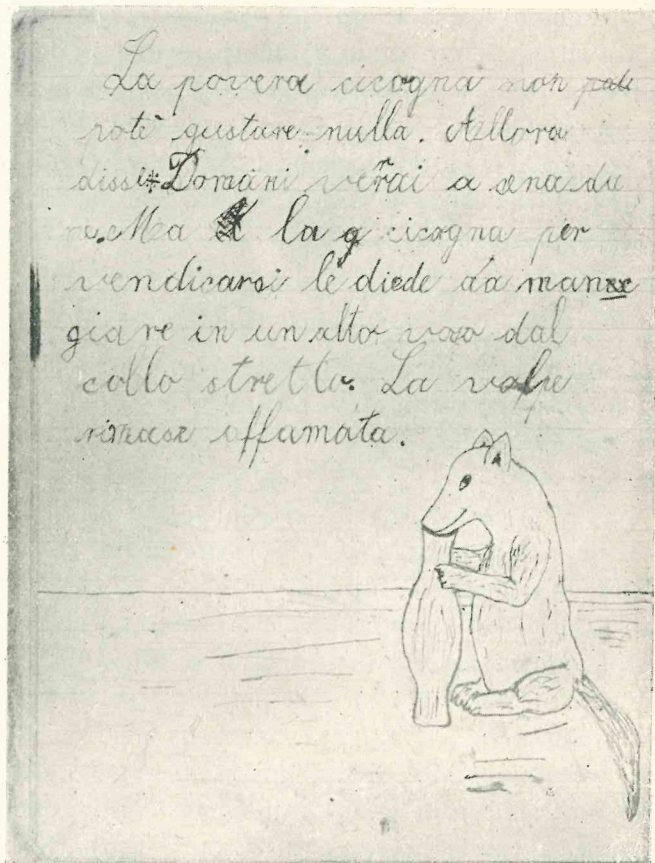 La povera cicogna non
potè gustare nulla. Allora
disse Domani verrai a cena da
me. Ma la cicogna per
vendicarsi le diede da man
giare in un alto vaso dal
collo stretto. La volpe
rimase affamata.